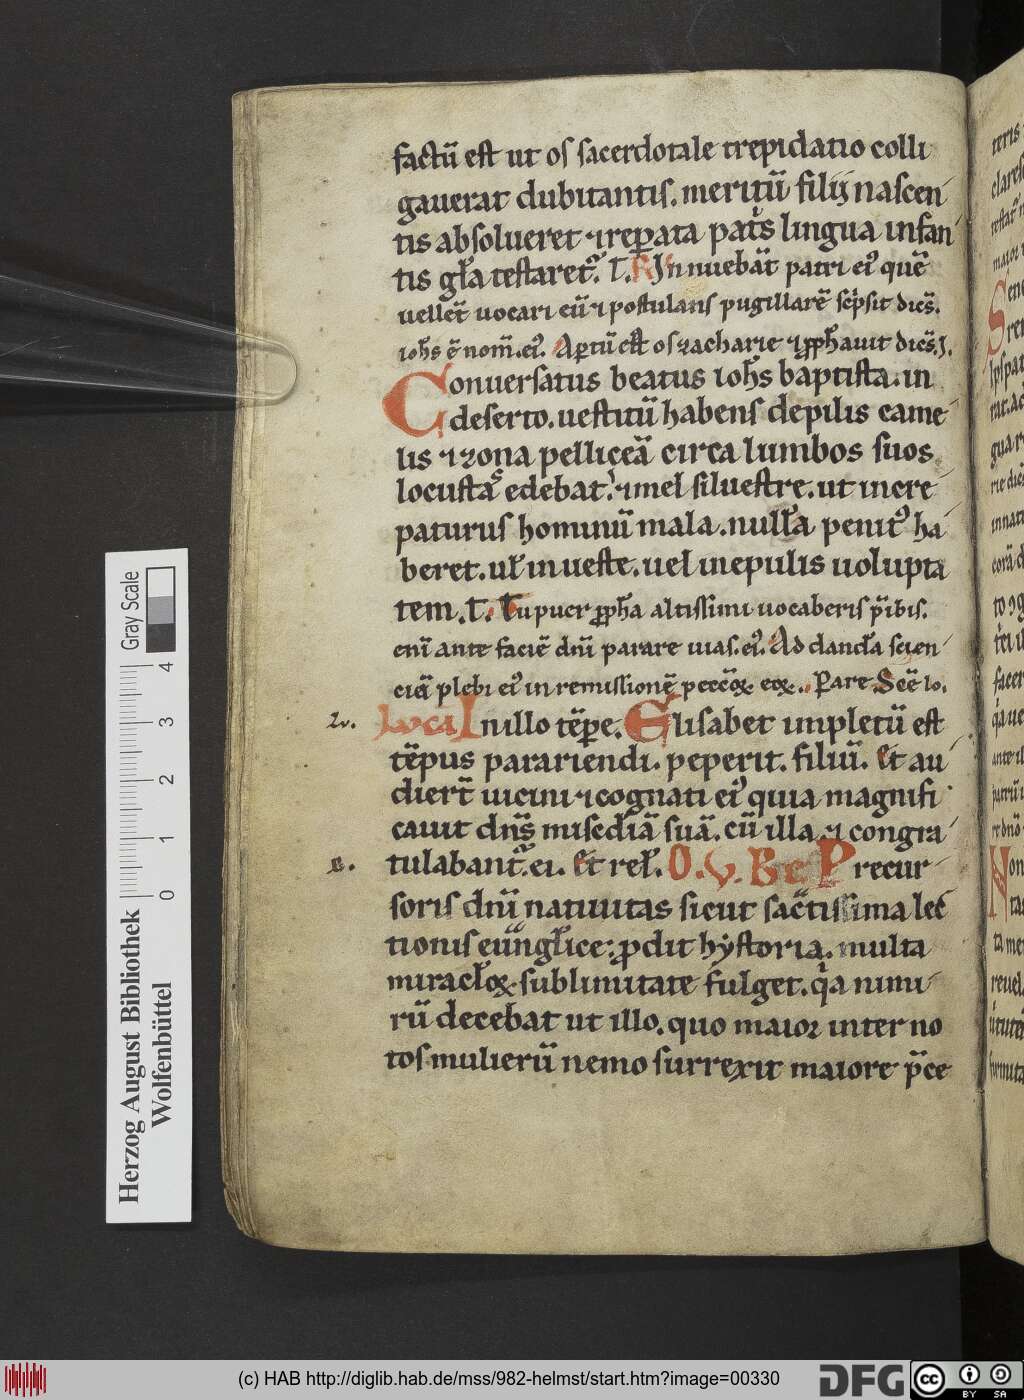 factū est ut os sacerdotale trepidatio colli
gauerat dubitantis. meritū filij nascen
tis absolueret ⁊ reꝑata patͥs lingua infan
tis gɫa testaret᷑. L. R In nuebāt patri eiꝰ quē
uellet̄ uocari eū ⁊ postulans pugillarē scͥpsit dicēs.
ioħs ē nom̄. eiꝰ. Aꝑtū est os zacharie ⁊ ꝓphauit dicēs. J.
Conuersatus beatus ioħs baptista. in
deserto. uestitū habens de pilis came
lis ⁊ zona pelliceā circa lumbos suos
locustas edebat. ⁊ mel siluestre. ut incre
paturus hominū mala. nulla penitꝰ ha
beret. uɫ in ueste. uel in epulis uolupta
tem. L. Tu puer ꝓpħa altissimi uocaberis pͥbis.
eni ante faciē dnī parare uias. eiꝰ. Ad dandā scien
ciā plebi eiꝰ in remissionē pecc̄oꝝ eoꝝ. Pare Scē Io.
Lv. Luca In illo tēpe. Elisabet impletū est
tēpus parariendi. peperit. filiū. et au
diert̄ uicini ⁊ cognati eiꝰ quia magnifi
cauit dn̄s misediā suā. cū illa ⁊ congra
B. tulabant᷑. ei. et rel̄. O. V. Be Precur
soris dnī natiuitas sicut sac̄tissima lec̄
tionis euu̅nglīce: ꝓdit hẏstoria. multa
miracɫoꝝ sublimitate fulget. qͥa nimi
rū decebat ut illo. quo maior inter no
tos mulierū nemo surrexit maiore p̄ce
Gray Scale
0 1 2 3 4
Herzog August Bibliothek
Wolfenbüttel
(c) HAB http://diglib.hab.de/mss/982-helmst/start.htm?image=00330
DFG
cc BY SA